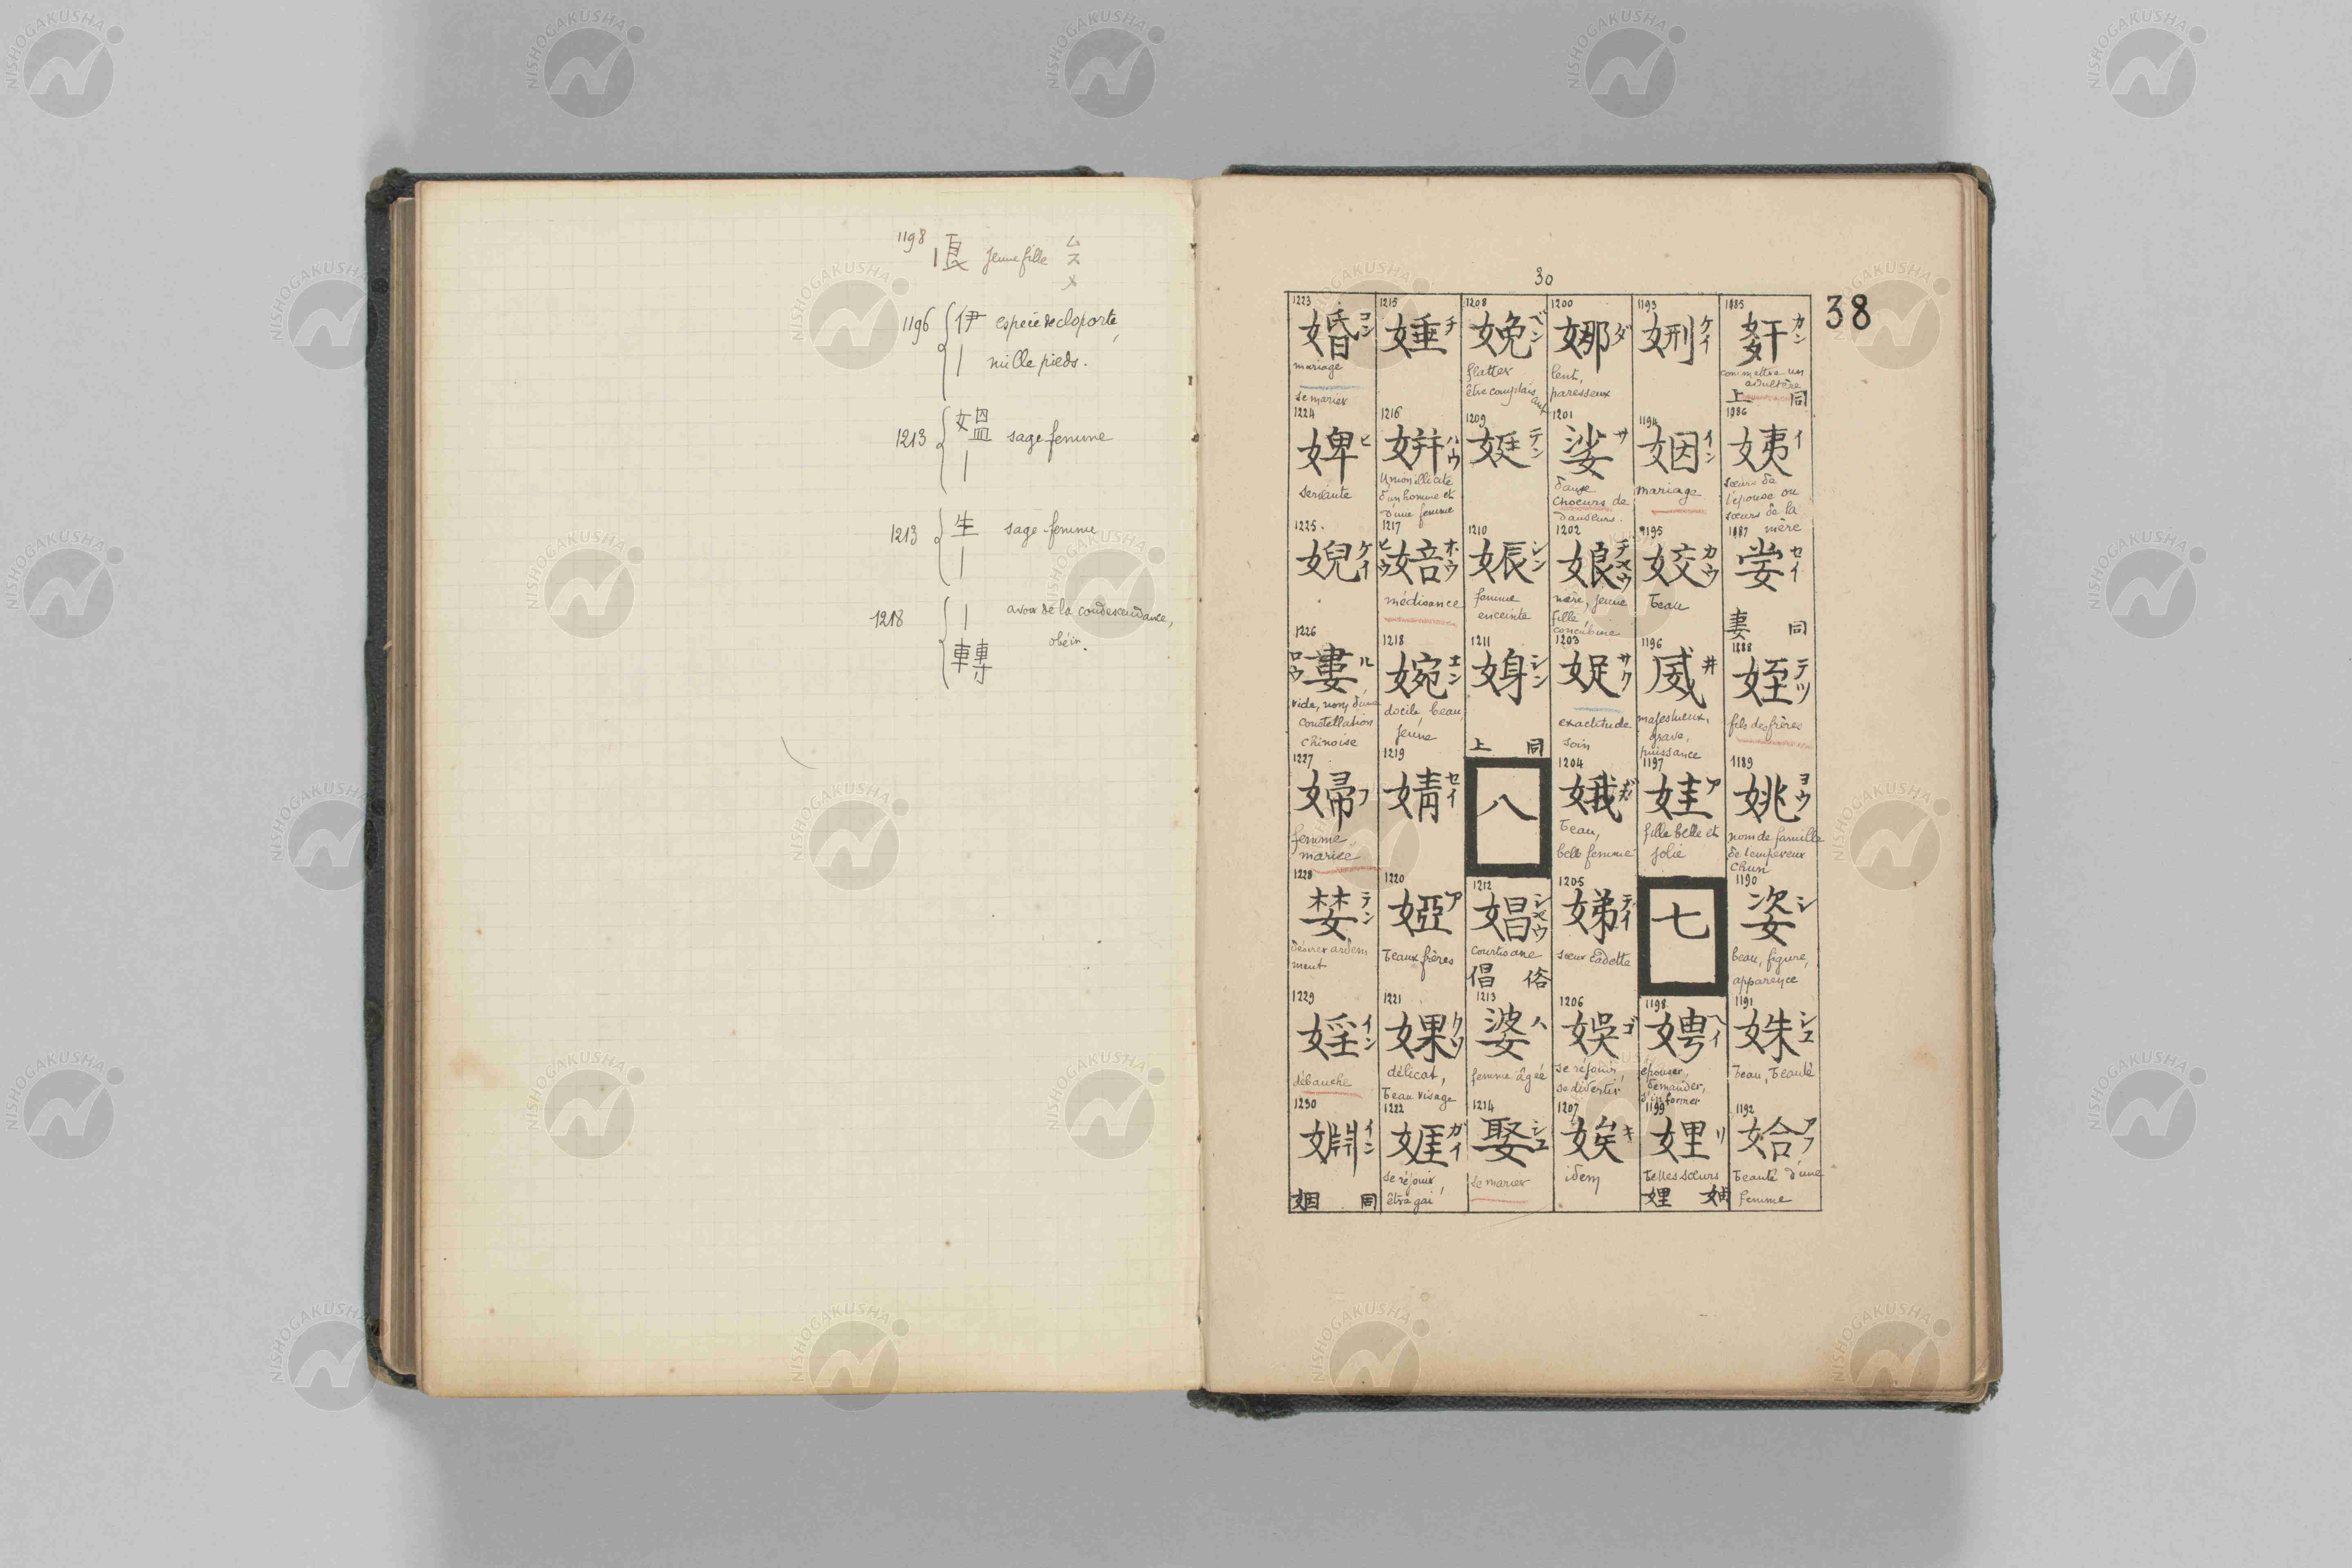 1198
|娘 jeune fille ムスメ
1196 伊 espèce de cloporte,
| mille pieds.
1213 媼 sage femme
|
1213 生 sage-femme
|
1218 | avoir de la condescendance,
轉 obéir.
30
38
1185 姧 カン
commettre un
adultère
上同
1186 姨 イ
sœurs de
l'épouse ou
sœurs de la
mère
1187 セイ
妻同
1188 姪 テツ
fils des frères
1189 姚 ヨウ
nom de famille
de l'empereur
Chun
1190 姿 シ
beau, figure,
apparence
1191 姝 シユ
beau, beauté
1192 姶 アフ
beauté d'une
femme
1193 㛝 ケイ
1194 姻 イン
mariage
1195 姣 カウ
beau
1196 威 井
majestueux,
grave,
puissance
1197 娃 ア
fille belle et
jolie
七
1198 娉 ヘイ
épouser,
demander,
s'informer
1199 娌 リ
belles sœurs
1200 娜 ダ
lent,
paresseux
1201 娑 サ
danse
Chœurs de
danseurs.
1202 娘 チヤウ
mère, jeune
fille
concubine
1203 娖 サク
exactitude
soin
1204 娥 ガ
beau,
belle femme
1205 娣 テイ
sœur cadette
1206 娛 ゴ
se réjouir,
se divertir
1207 娭 キ
idem
1208 娩 ベン
flatter
être complaisant
1209 娗 テン
1210 娠 シン
femme
enceinte
1211 㛛 シン
上同
八
1212 娼 シヤウ
courtisane
倡俗
1213 婆 ハ
femme âgée
1214 娶 シユ
se marier
1215 娷 チ
1216 姘 ハウ
Union illicite
d'un homme et
d'une femme
1217 婄 ホウ ヒウ
médisance
1218 婉 エン
docile, beau,
jeune
1219 婧 セイ
1220 婭 ア
beaux frères
1221 婐 クワ
délicat,
beau visage
1222 娾 ガイ
se réjouir,
être gai
1223 婚 コン
mariage
se marier
1224 婢 ヒ
servante
1225. 婗 ケイ
1226 婁 ル ロウ
vide, nom d'une
constellation
chinoise
1227 婦 フ
femme
mariée
1228 婪 テン
désirer ardem
ment
1229 婬 イン
débauche
1230 婣 イン
姻同